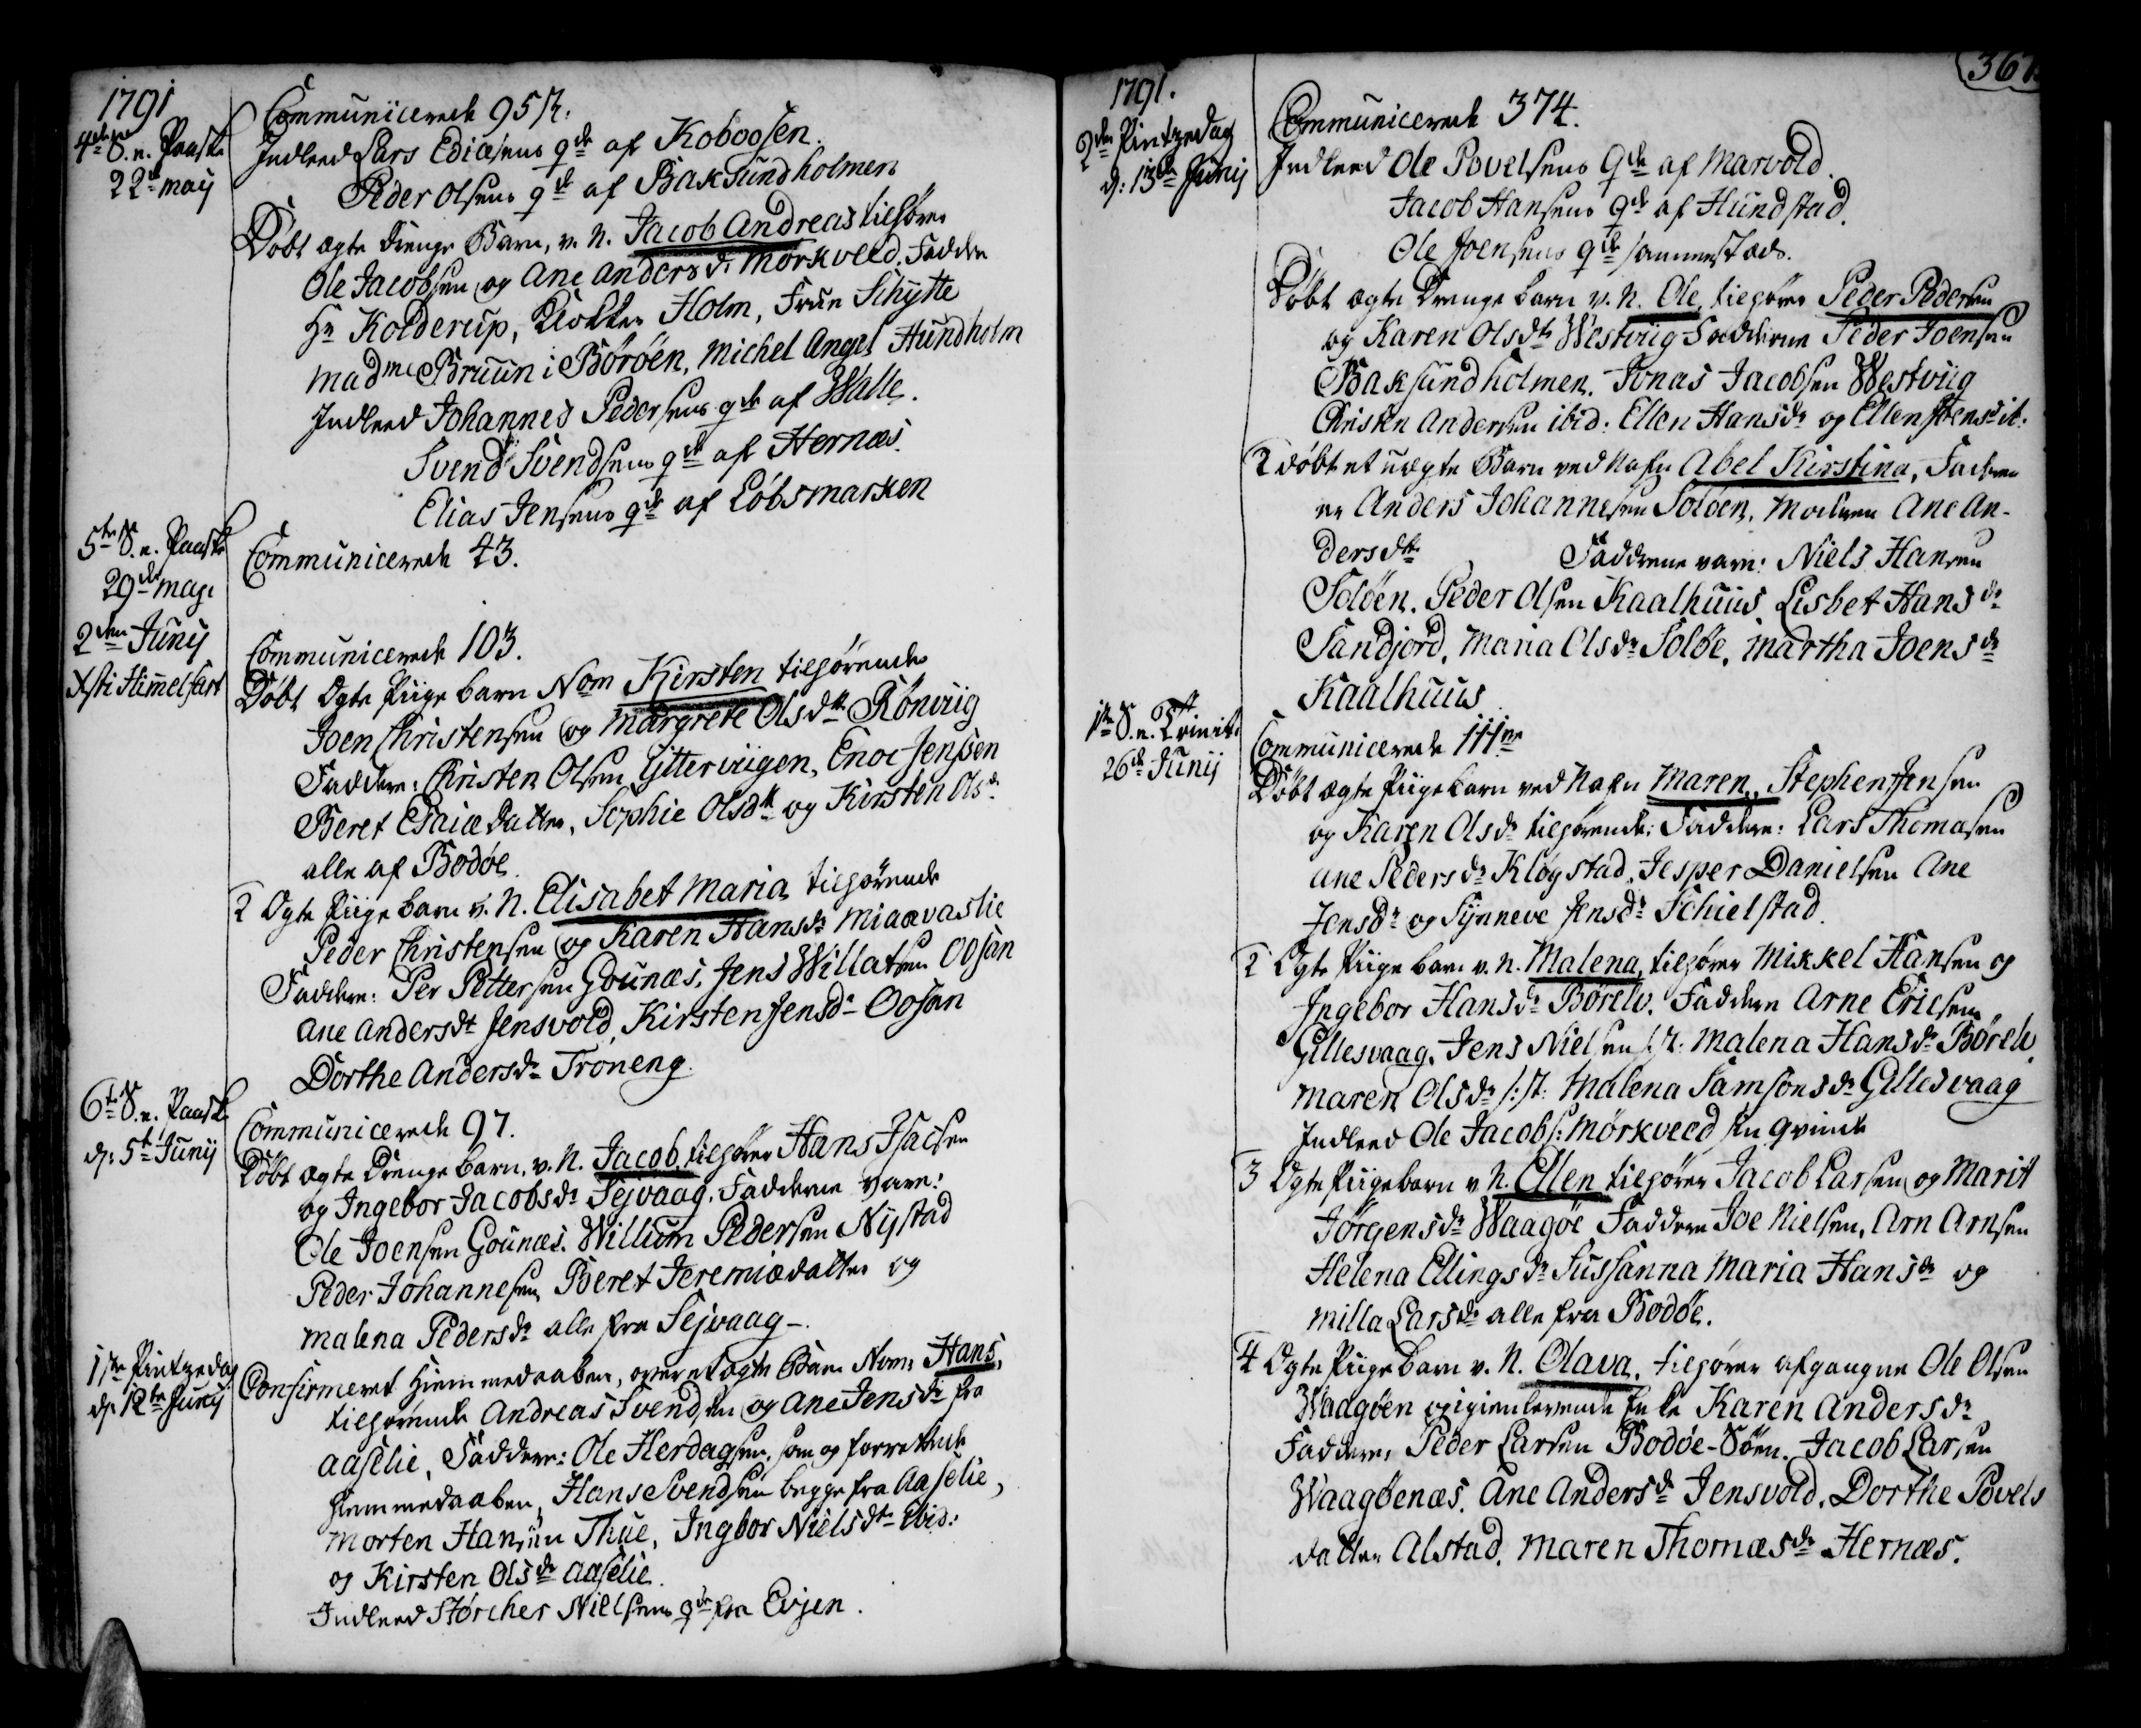 1791
4de S. n. Paaske
22de maij
Communicerede 95 St:
Indleed Lars Ediæsens qde af Koboosen.
Peder Olsens qde af Baksundholmen
Døbt ægte Drenge Barn, v. N. Jacob Andreas tilhører
Ole Jacobsen og Ane Andersdr Mørkveed. Faddere
Hr Kolderup, Holm, Frue Schytte
Madme Bruun i Børøen, Michel Angel Hundholm
Indleed Johannes Pedersens qde af Walle.
Svend Svendsens qde af Hernæs.
Elias Jensens qde af Løbsmarken
5te S. n. Paaske
29de maj.
Communicerede 43.
2den Junij
Xsti Himmelfart
Communicerede 103.
Døbt Ægte Piige barn Nom Kirsten tilhørende
Joen Christensen og Margrete Olsdtr Rønviig
Faddere: Christen Olsen Gitterviigen, Enoc Jenssen
Beret Esaiæ Datter, Sophie Olsdtr og Kirsten Olsdr
alle af Bodøe.
2 Ægte Piige barn v. N. Elisabet Maria tilhørende
Peder Christensen og Karen Hansdr Miaavaslie
Faddere: Per Pettersen Gounæs, Jens Willatsen Oosan
Ane Andersdt Jensvold, Kirsten Jensdr Oosan
Dorthe Andersdr Troneng.
6te S. n. Paaske
d: 5te Junij
Communicerede 97.
Døbt ægte Drenge barn, v. N. Jacob, tilhører Hans Isacsen
og Ingebor Jacobsdr Sejvaag, Fadderne vare:
Ole Joensen Gounæs. Willum Pedersen Nystad
Peder Johannesen, Beret Jeremiædatter og
Malena Pedersdr alle fra Sejvaag -.
1ste Pintzedag
d: 12te Junij
Confirmeret Hiemmedaaben, over et ægte Barn Nom: Hans,
tilhørende Andreas Svendsen og Ane Jensdr fra
Aaselie, Faddere: Ole Herdagsen, som og forrettede
Hiemmedaaben, Hans Svendsen begge fra Aaselie,
Morten Hansen Thue, Ingbor Nielsdtr Ibid:
og Kirsten Olsdr Aaselie.
Indleed Størcher Nielsens qde fra Evjen.
361
1791.
2den Pintzedag
d: 13de Junij
Communicerede 374.
Indleed Ole Povelsens Qde af Marvold.
Jacob Hansens qde af Hundstad.
Ole Joensens qde sammestæds.
Døbt ægte Drenge barn v. N. Ole, tilhører Peder Pedersen
og Karen Olsdtr Westviig Fadderne Peder Joensen
Baksundholmen. Jonas Jacobsen Westviig
Christen Andersen ibid: Ellen Hansdr og Ellen Joensd it.
2 døbt et uægte Barn ved Nafn Abel Kirstina, Faderen
er Anders Johannesen Soløen, Moderen Ane An-
dersdtr Fadderne vare: Niels Hansen
Soløen. Peder Olsen Kaalhuus Lisbet Hansdr
Sandjord, Maria Olsdr Soløe, Martha Joensdr
Kaalhuus
1ste S. n. Trinit:
26de Junij
Communicerede 111ve
Døbt ægte Piigebarn ved Nafn Maren, Stephen Jensen
og Karen Olsdr tilhørende: Faddere: Lars Thomasen
Ane Pedersdr Kløgstad, Jesper Danielsen Ane
Jensdr og Synneve Jensdr Schielstad.
2 Ægte Piige barn v. N. Malena, tilhører Mikkel Hansen og
Ingebor Hansdr Børelv. Faddere Arne Ericsen
Gillesvaag. Jens Nielsen s: st: Malena Hansdr Børelv.
Maren Olsdr s: st: Malena Samsonsdr Gillesvaag
Indleed Ole Jacobs: Mørkveed sin qvinde
3 Ægte Piigebarn v N. Ellen tilhører Jacob Larsen og Marit
Jørgensdr Waagøe Faddere Joe Nielsen, Arn Arnsen
Helena Ellingsdr Sussanna Maria Hansdr og
Milla Larsdr alle fra Bodøe.
4 Ægte Piige barn v. N. Olava, tilhører afgangne Ole Olsen
Waagøen og igienlevende Enke Karen Andersdr
Faddere, Peder Larsen Bodøe-Søen. Jacob Larsen
Waagøenæs. Ane Andersdr Jensvold, Dorthe Povels
datter Alstad. Maren Thomæsdr Hernæs.